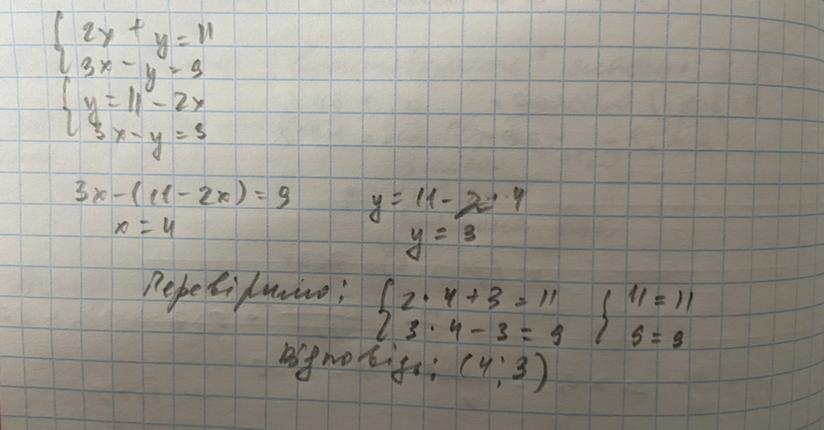 { 2x + y = 11
3x - y = 9
{ y = 11 - 2x
3x - y = 9
3x - (11 - 2x) = 9 y = 11 - 2 · 4
x = 4 y = 3
Перевіримо: { 2 · 4 + 3 = 11 { 11 = 11
3 · 4 - 3 = 9 9 = 9
Відповідь: (4; 3)